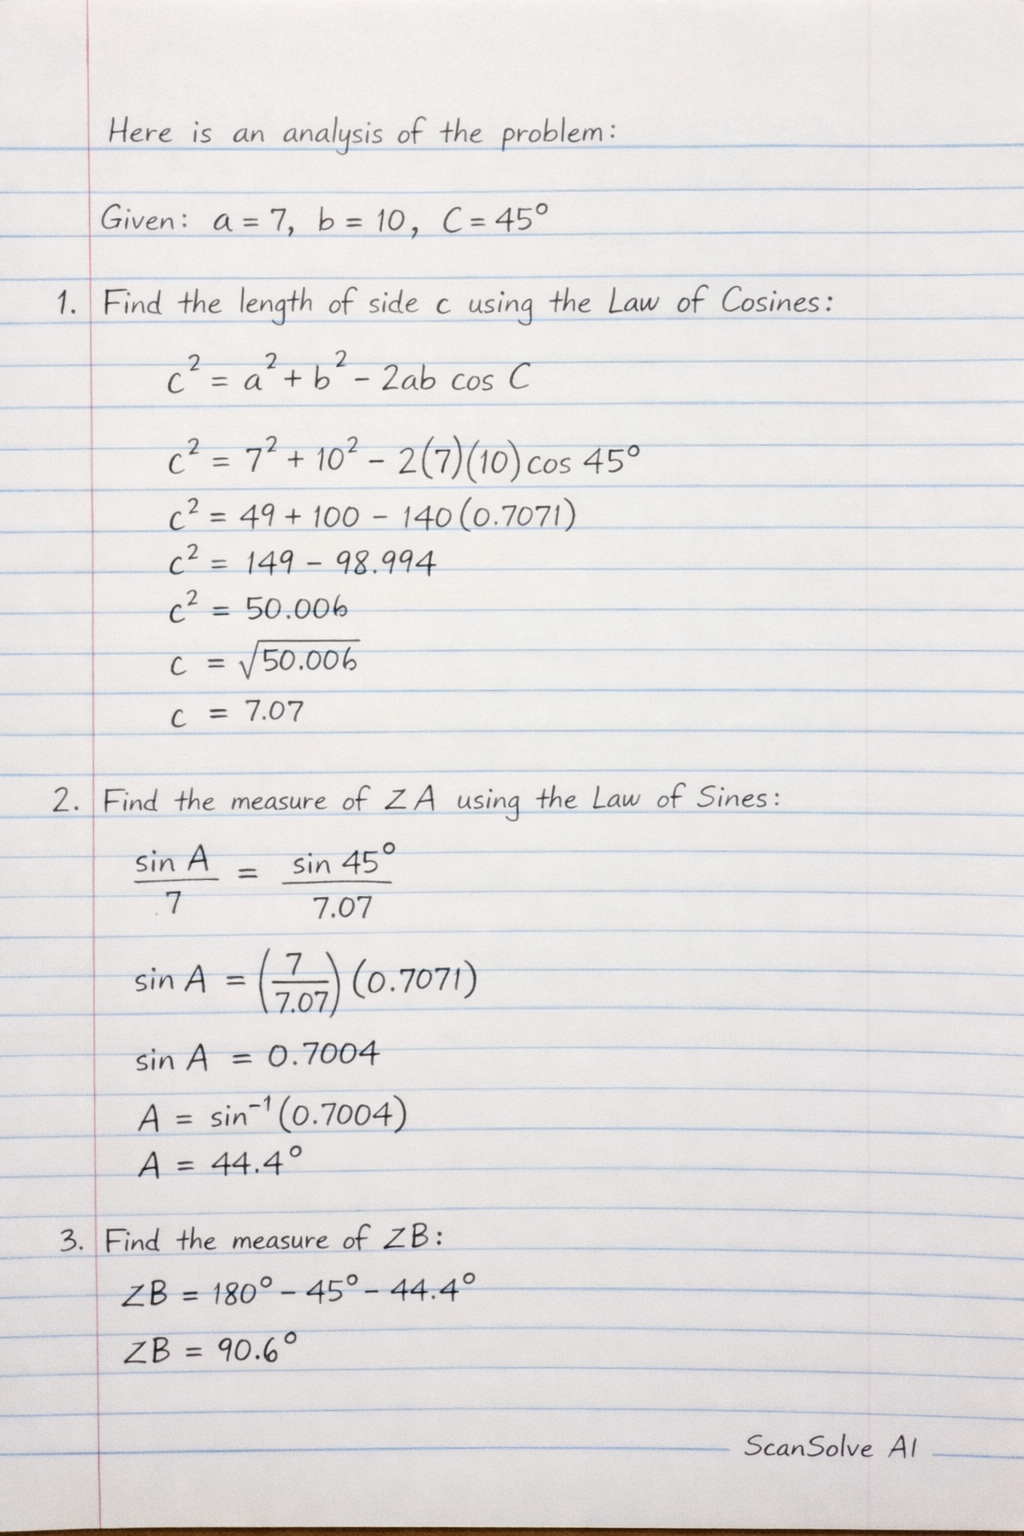 Here is an analysis of the problem:
Given: a = 7, b = 10, C = 45°
1. Find the length of side c using the Law of Cosines:
c² = a² + b² - 2ab cos C
c² = 7² + 10² - 2(7)(10) cos 45°
c² = 49 + 100 - 140(0.7071)
c² = 149 - 98.994
c² = 50.006
c = √50.006
c = 7.07
2. Find the measure of ZA using the Law of Sines:
sin A / 7 = sin 45° / 7.07
sin A = (7 / 7.07)(0.7071)
sin A = 0.7004
A = sin⁻¹(0.7004)
A = 44.4°
3. Find the measure of ZB:
ZB = 180° - 45° - 44.4°
ZB = 90.6°
ScanSolve AI